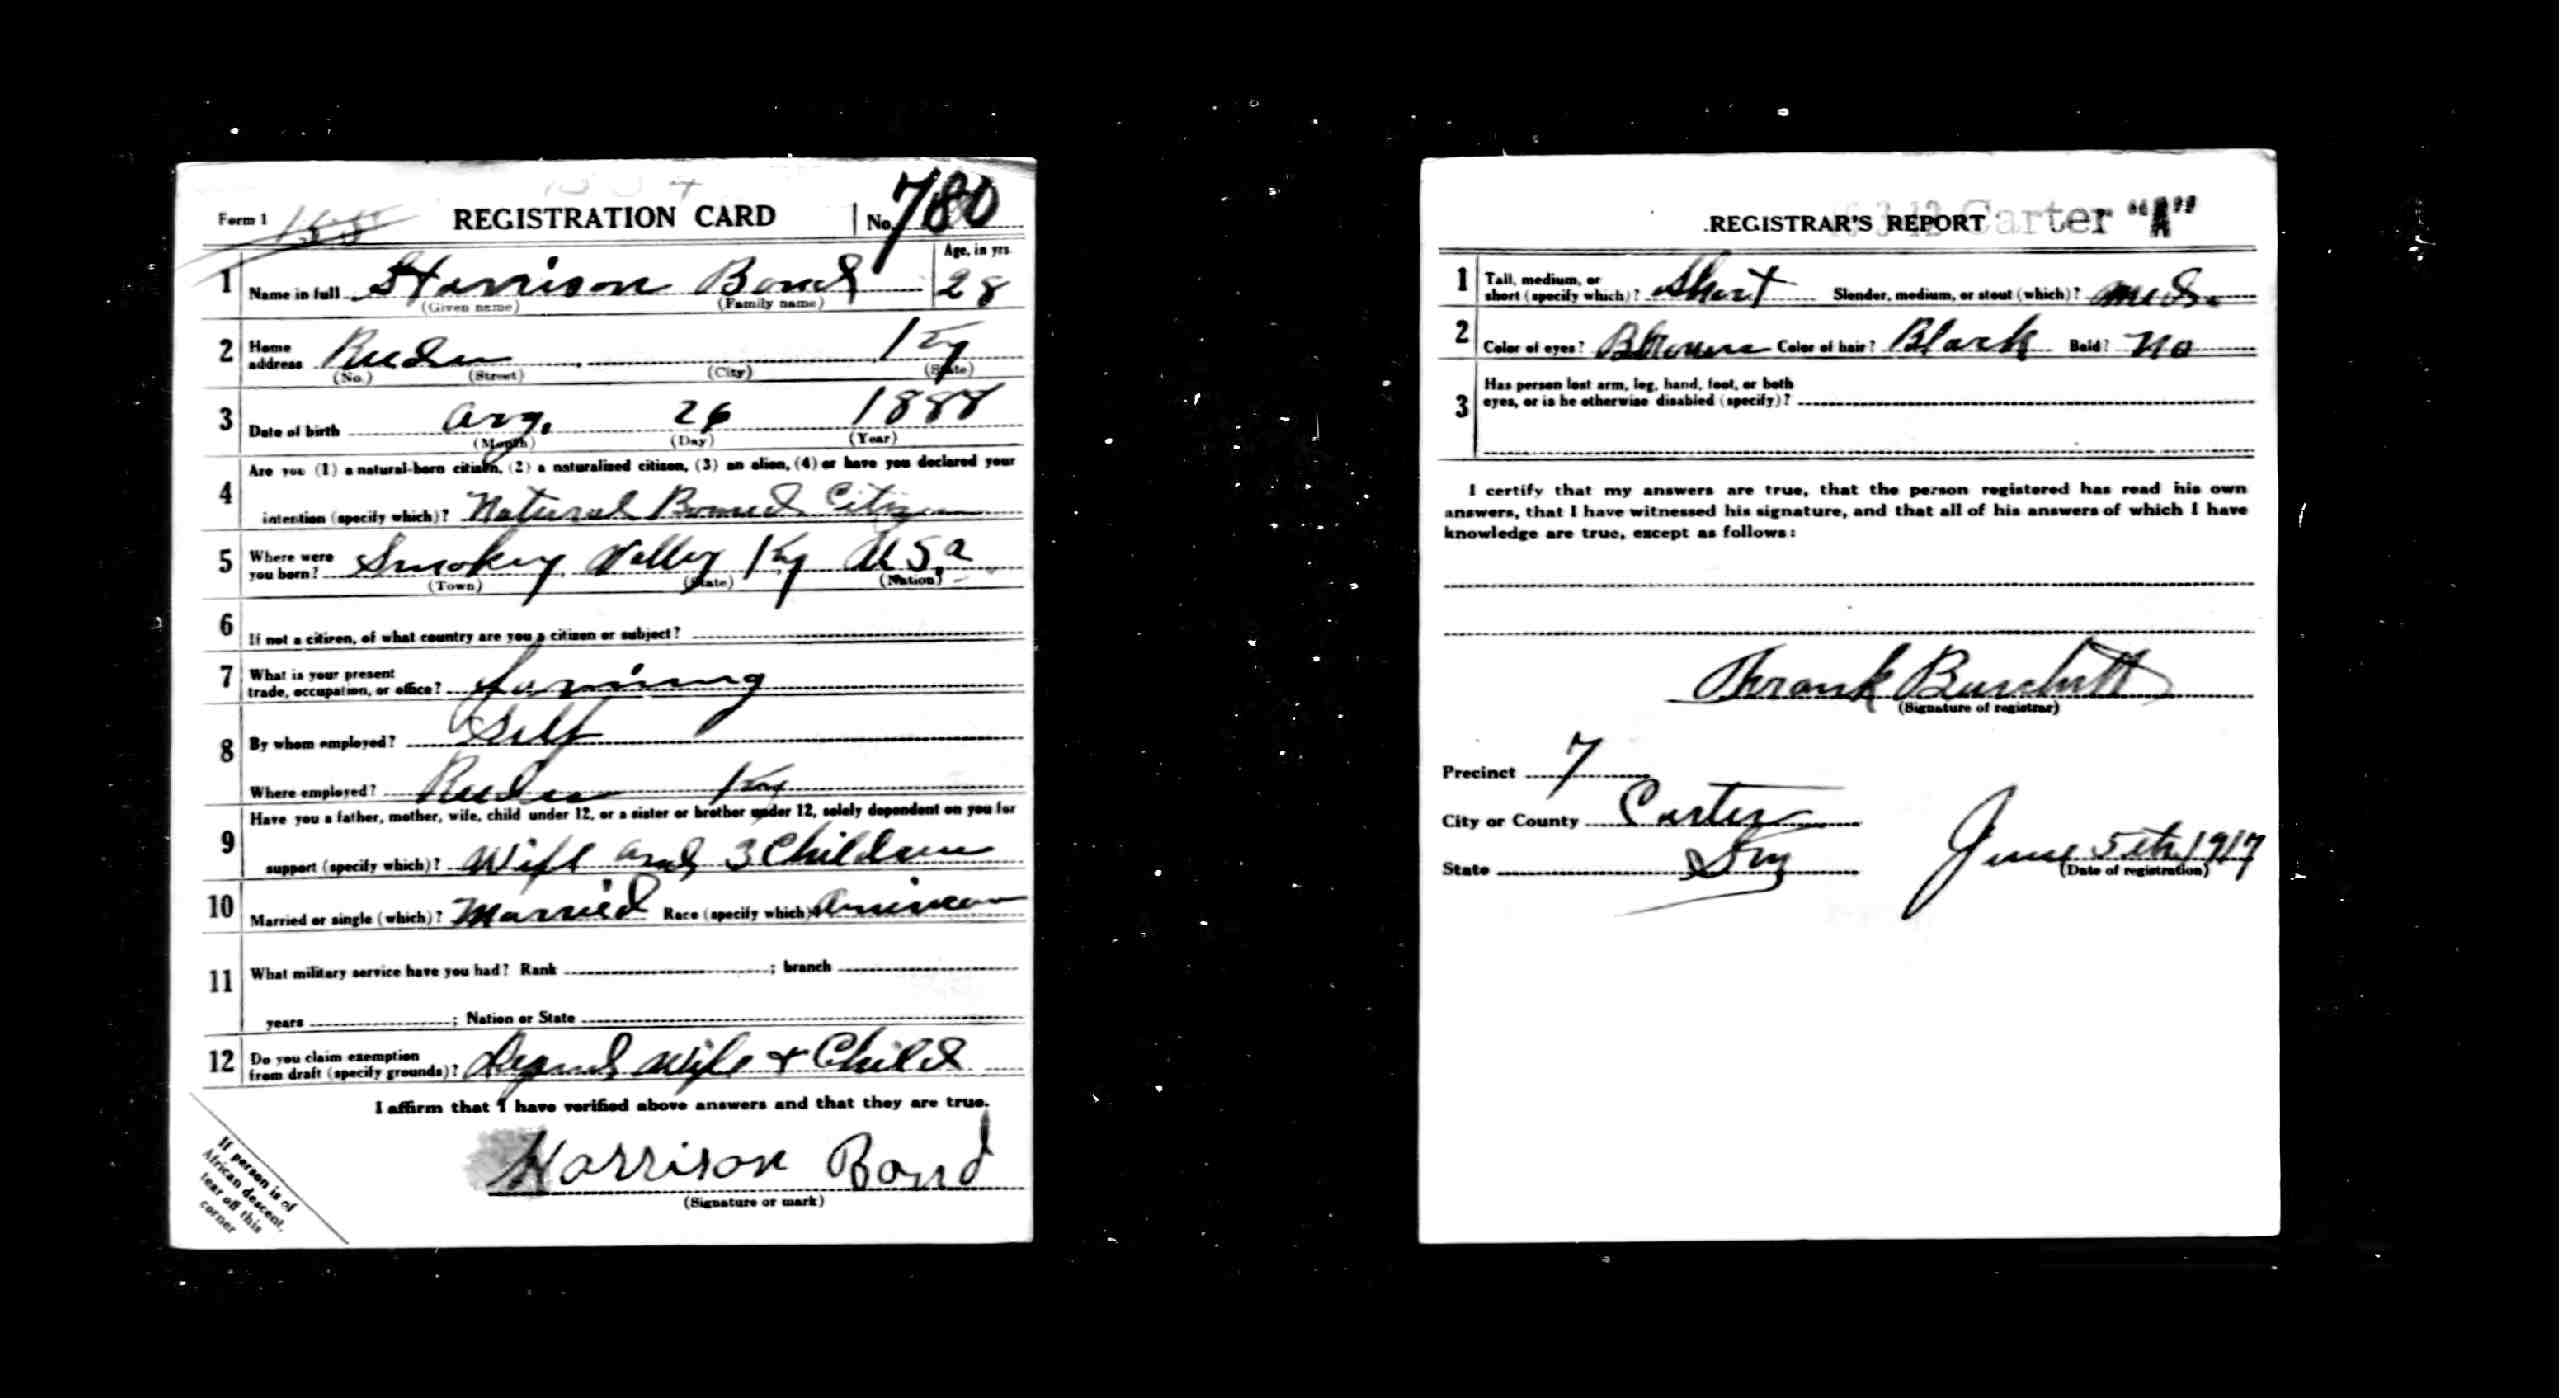 Form 1
REGISTRATION CARD
No. 780
1 Name in full Harrison Bond
(Given name) (Family name)
Age, in yrs. 28
2 Home address Ky
(No.) (Street) (City) (State)
3 Date of birth Aug. 26 1888
(Month) (Day) (Year)
4 Are you (1) a natural-born citizen, (2) a naturalized citizen, (3) an alien, (4) or have you declared your
intention (specify which)? Natural Citizen
5 Where were you born? Smokey Valley Ky U.S.a
(Town) (State) (Nation)
6 If not a citizen, of what country are you a citizen or subject?
7 What is your present
trade, occupation, or office? farming
8 By whom employed? Self
Where employed? Ky
9 Have you a father, mother, wife, child under 12, or a sister or brother under 12, solely dependent on you for
support (specify which)? Wife and 3 Children
10 Married or single (which)? Married Race (specify which)? American
11 What military service have you had? Rank ; branch
years ; Nation or State
12 Do you claim exemption
from draft (specify grounds)? Wife + Child
I affirm that I have verified above answers and that they are true.
Harrison Bond
(Signature or mark)
If person is of
African descent,
tear off this
corner
REGISTRAR'S REPORT
Carter "A"
1 Tall, medium, or
short (specify which)? Short Slender, medium, or stout (which)? Med.
2 Color of eyes? Brown Color of hair? Black Bald? No
3 Has person lost arm, leg, hand, foot, or both
eyes, or is he otherwise disabled (specify)?
I certify that my answers are true, that the person registered has read his own
answers, that I have witnessed his signature, and that all of his answers of which I have
knowledge are true, except as follows:
Burchett
(Signature of registrar)
Precinct 7
City or County Carter
State Ky
June 5th 1917
(Date of registration)